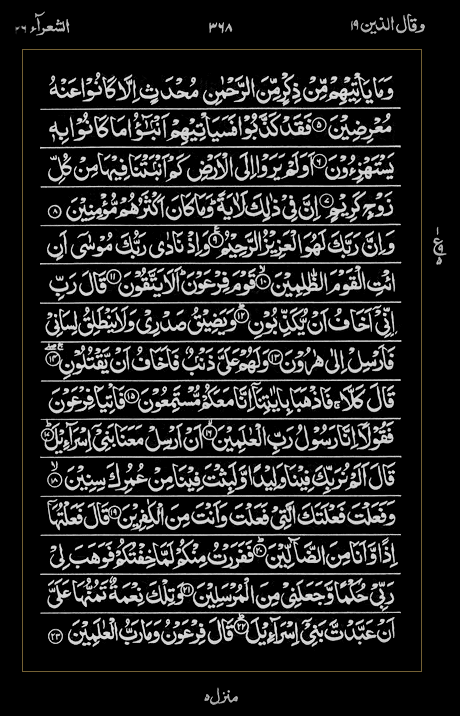 وقال الذين ١٩ ٣٦٨ الشعرآء ٢٦
وَمَا يَاْتِيْهِمْ مِّنْ ذِكْرٍ مِّنَ الرَّحْمٰنِ مُحْدَثٍ اِلَّا كَانُوْا عَنْهُ
مُعْرِضِيْنَ ۝٥ فَقَدْ كَذَّبُوْا فَسَيَاْتِيْهِمْ اَنْۢبٰٓؤُا مَا كَانُوْا بِهٖ
يَسْتَهْزِءُوْنَ ۝٦ اَوَلَمْ يَرَوْا اِلَى الْاَرْضِ كَمْ اَنْۢبَتْنَا فِيْهَا مِنْ كُلِّ
زَوْجٍ كَرِيْمٍ ۝٧ اِنَّ فِيْ ذٰلِكَ لَاٰيَةً ؕ وَمَا كَانَ اَكْثَرُهُمْ مُّؤْمِنِيْنَ ۝٨
وَاِنَّ رَبَّكَ لَهُوَ الْعَزِيْزُ الرَّحِيْمُ ۝٩ وَاِذْ نَادٰى رَبُّكَ مُوْسٰٓى اَنِ
ائْتِ الْقَوْمَ الظّٰلِمِيْنَ ۝١٠ قَوْمَ فِرْعَوْنَ ؕ اَلَا يَتَّقُوْنَ ۝١١ قَالَ رَبِّ
اِنِّيْٓ اَخَافُ اَنْ يُّكَذِّبُوْنِ ۝١٢ وَيَضِيْقُ صَدْرِيْ وَلَا يَنْطَلِقُ لِسَانِيْ
فَاَرْسِلْ اِلٰى هٰرُوْنَ ۝١٣ وَلَهُمْ عَلَيَّ ذَنْۢبٌ فَاَخَافُ اَنْ يَّقْتُلُوْنِ ۝١٤
قَالَ كَلَّا ۚ فَاذْهَبَا بِاٰيٰتِنَآ اِنَّا مَعَكُمْ مُّسْتَمِعُوْنَ ۝١٥ فَاْتِيَا فِرْعَوْنَ
فَقُوْلَآ اِنَّا رَسُوْلُ رَبِّ الْعٰلَمِيْنَ ۝١٦ اَنْ اَرْسِلْ مَعَنَا بَنِيْٓ اِسْرَآءِيْلَ ۝١٧
قَالَ اَلَمْ نُرَبِّكَ فِيْنَا وَلِيْدًا وَّلَبِثْتَ فِيْنَا مِنْ عُمُرِكَ سِنِيْنَ ۝١٨
وَفَعَلْتَ فَعْلَتَكَ الَّتِيْ فَعَلْتَ وَاَنْتَ مِنَ الْكٰفِرِيْنَ ۝١٩ قَالَ فَعَلْتُهَآ
اِذًا وَّاَنَا مِنَ الضَّآلِّيْنَ ۝٢٠ فَفَرَرْتُ مِنْكُمْ لَمَّا خِفْتُكُمْ فَوَهَبَ لِيْ
رَبِّيْ حُكْمًا وَّجَعَلَنِيْ مِنَ الْمُرْسَلِيْنَ ۝٢١ وَتِلْكَ نِعْمَةٌ تَمُنُّهَا عَلَيَّ
اَنْ عَبَّدْتَّ بَنِيْٓ اِسْرَآءِيْلَ ۝٢٢ قَالَ فِرْعَوْنُ وَمَا رَبُّ الْعٰلَمِيْنَ ۝٢٣
منزل ٥